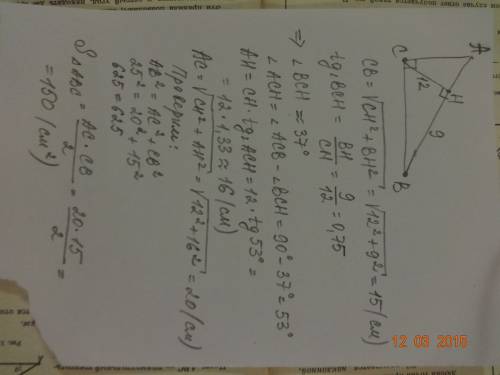 A
H
12
9
C
B
CB = √CH² + BH² = √12² + 9² = 15 (см)
tg∠BCH = BH/CH = 9/12 = 0,75
⇒ ∠BCH ≈ 37°
∠ACH = ∠ACB - ∠BCH = 90° - 37° = 53°
AH = CH · tg∠ACH = 12 · tg 53° =
= 12 · 1,33 ≈ 16 (см)
AC = √CH² + AH² = √12² + 16² = 20 (см)
Проверим:
AB² = AC² + CB²
25² = 20² + 15²
625 = 625
S△ABC = AC · CB/2 = 20 · 15/2 =
= 150 (см²)
12 03 2015